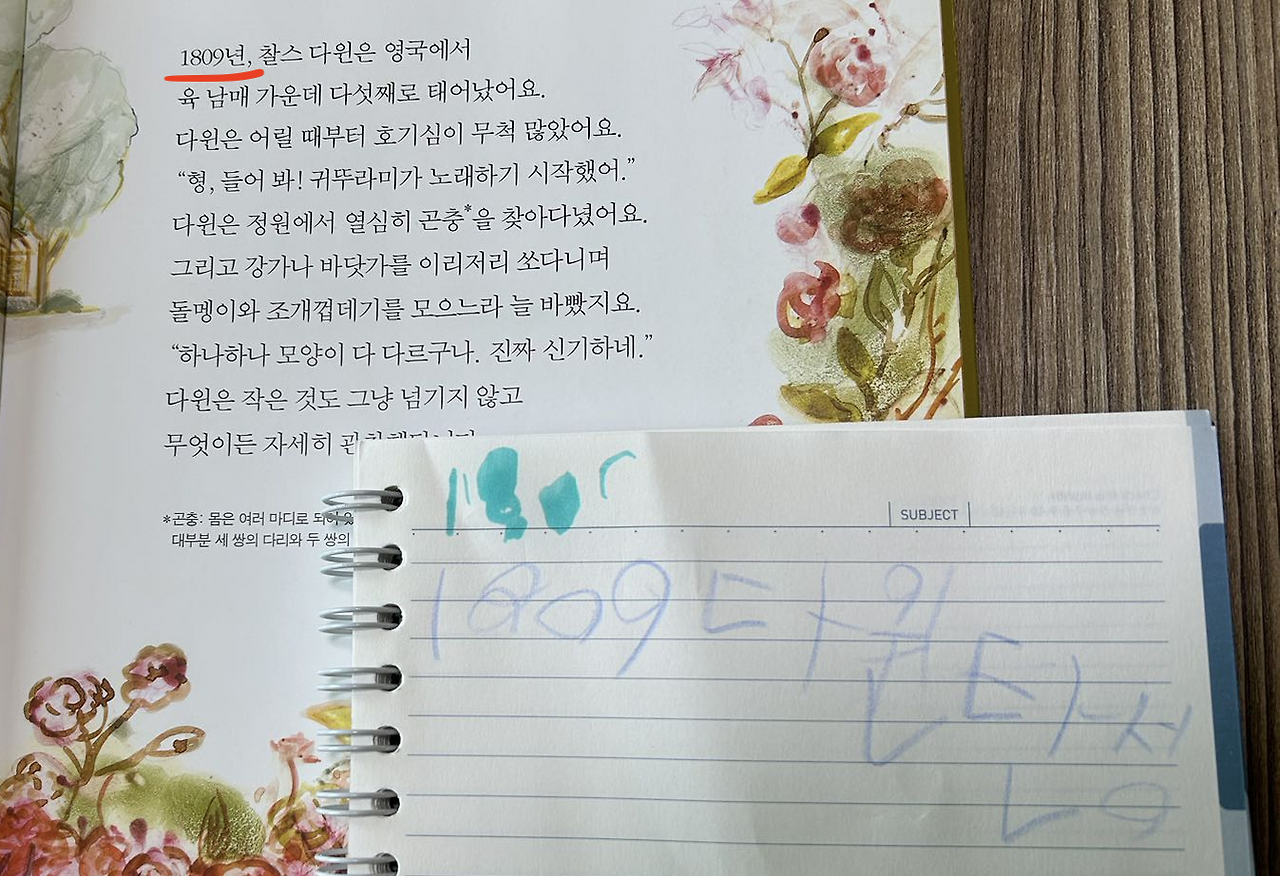 1809년, 찰스 다윈은 영국에서
육 남매 가운데 다섯째로 태어났어요.
다윈은 어릴 때부터 호기심이 무척 많았어요.
“형, 들어 봐! 귀뚜라미가 노래하기 시작했어.”
다윈은 정원에서 열심히 곤충*을 찾아다녔어요.
그리고 강가나 바닷가를 이리저리 쏘다니며
돌멩이와 조개껍데기를 모으느라 늘 바빴지요.
“하나하나 모양이 다 다르구나. 진짜 신기하네.”
다윈은 작은 것도 그냥 넘기지 않고
무엇이든 자세히
*곤충: 몸은 여러 마디로 되어
대부분 세 쌍의 다리와 두 쌍의
SUBJECT
1809 다윈 탄생